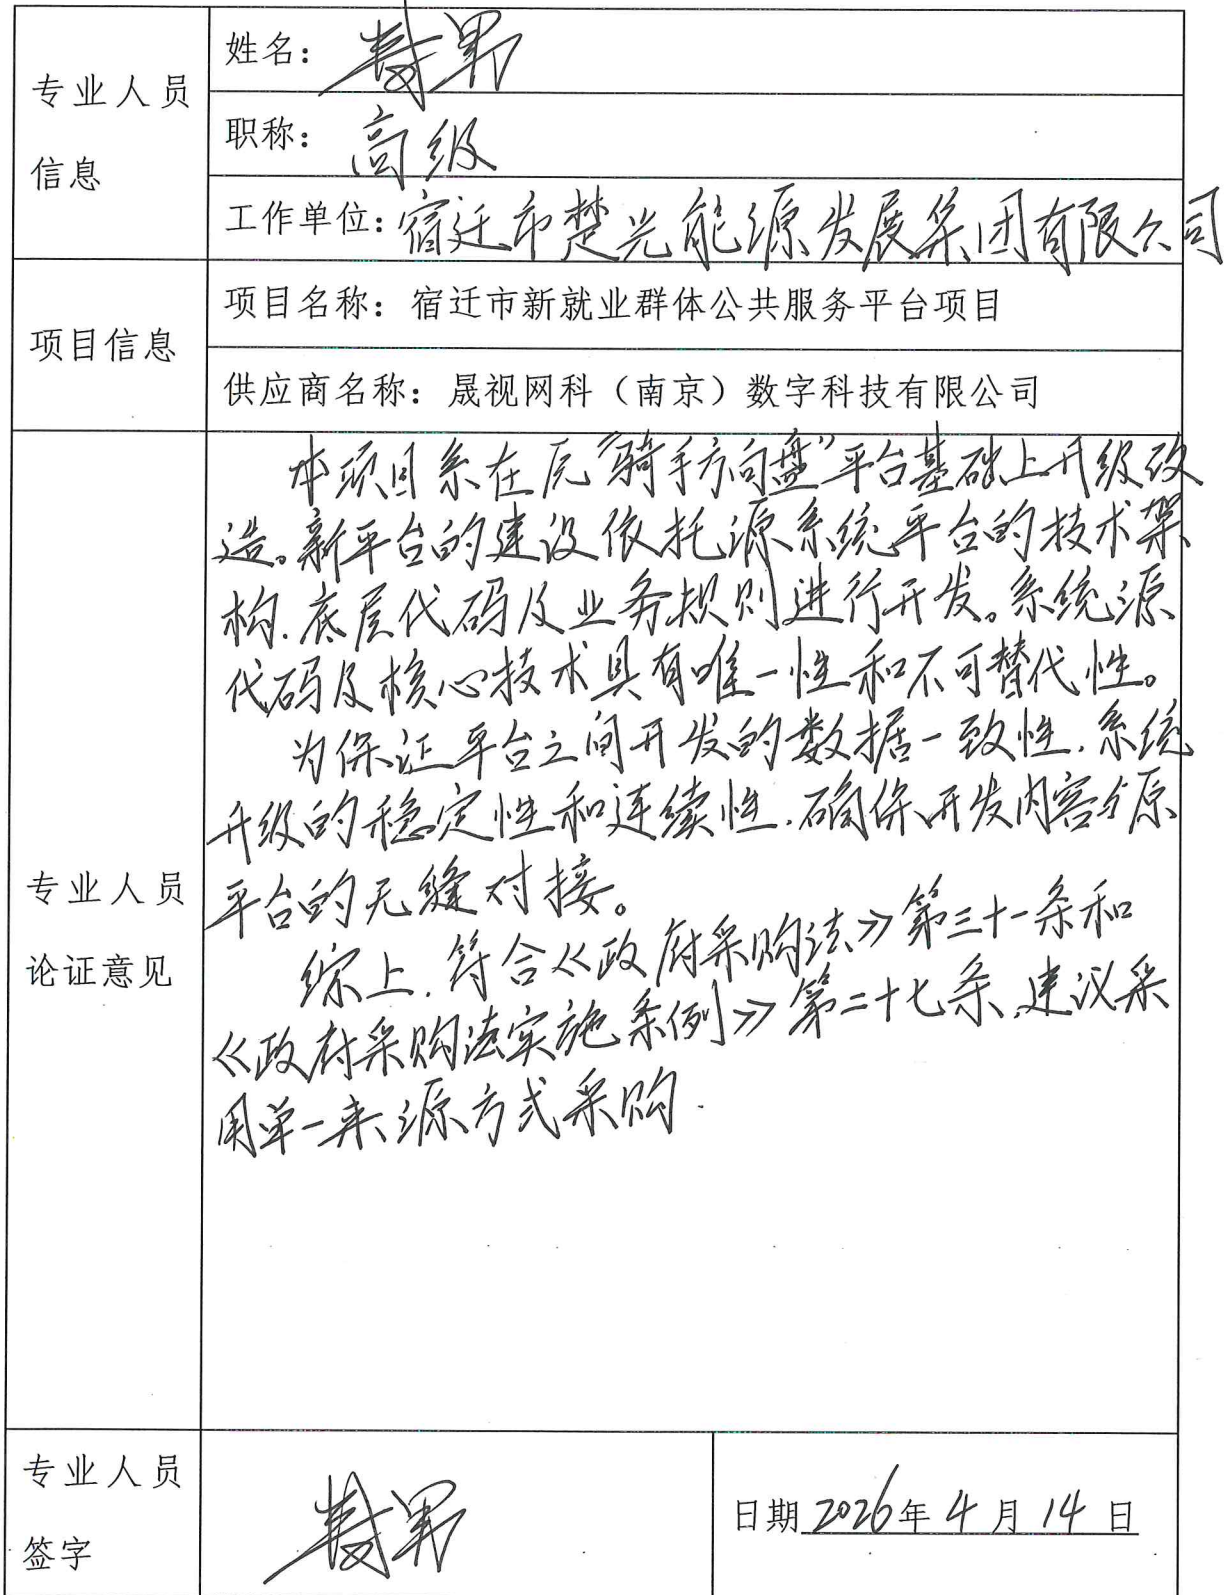 专业人员
信息
姓名：
职称：高级
工作单位：宿迁市楚光能源发展集团有限公司
项目信息
项目名称：宿迁市新就业群体公共服务平台项目
供应商名称：晟视网科（南京）数字科技有限公司
专业人员
论证意见
本项目系在原“骑手方向盘”平台基础上升级改
造。新平台的建设依托源系统平台的技术架
构.底层代码及业务规则进行开发。系统源
代码及核心技术具有唯一性和不可替代性。
为保证平台之间开发的数据一致性.系统
升级的稳定性和连续性.确保开发内容与原
平台的无缝对接。
综上.符合《政府采购法》第三十一条和
《政府采购法实施条例》第二十七条,建议采
用单一来源方式采购.
专业人员
签字
日期2026年4月14日